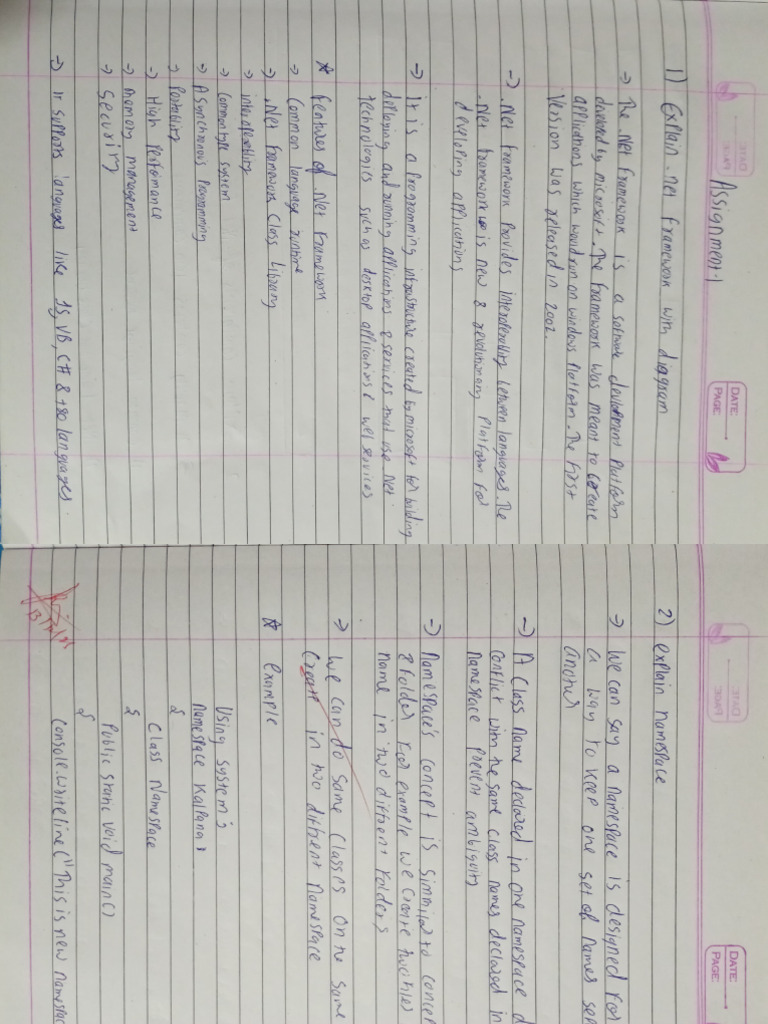 Assignment-1
DATE:
PAGE:
1) Explain .net framework with diagram
→ The .Net framework is a software development platform
developed by microsoft. The framework was meant to create
applications which would run on windows platform. The first
version was released in 2002.
→ .Net framework provides interoperability between languages. The
.Net framework is new & revolutionary platform for
developing applications
→ It is a programming infrastructure created by microsoft for building
deploying and running applications & services that use .Net
technologies such as desktop applications & web services
* features of .Net framework
→ Common language runtime
→ .Net framework class Library
→ interoperability
→ Common type system
→ Asynchronous Programming
→ Portability
→ High Performance
→ memory management
→ Security
→ It supports languages like JS, VB, C# & +80 languages.
DATE:
PAGE:
2) explain namespace
→ We can say a namespace is designed for
a way to keep one set of names sep
another
→ A class name declared in one namespace d
conflict with the same class names declared in
namespace prevent ambiguity
→ Namespace's concept is simmilar to concep
of folder for example we create two files
name in two diffrent folders
→ We can do same classes on the same
create in two diffrent namespace
* example
Using system;
Namespace Kalpana
{
Class Namespace
{
Public static void main()
{
Console.writeline("This is new namespac